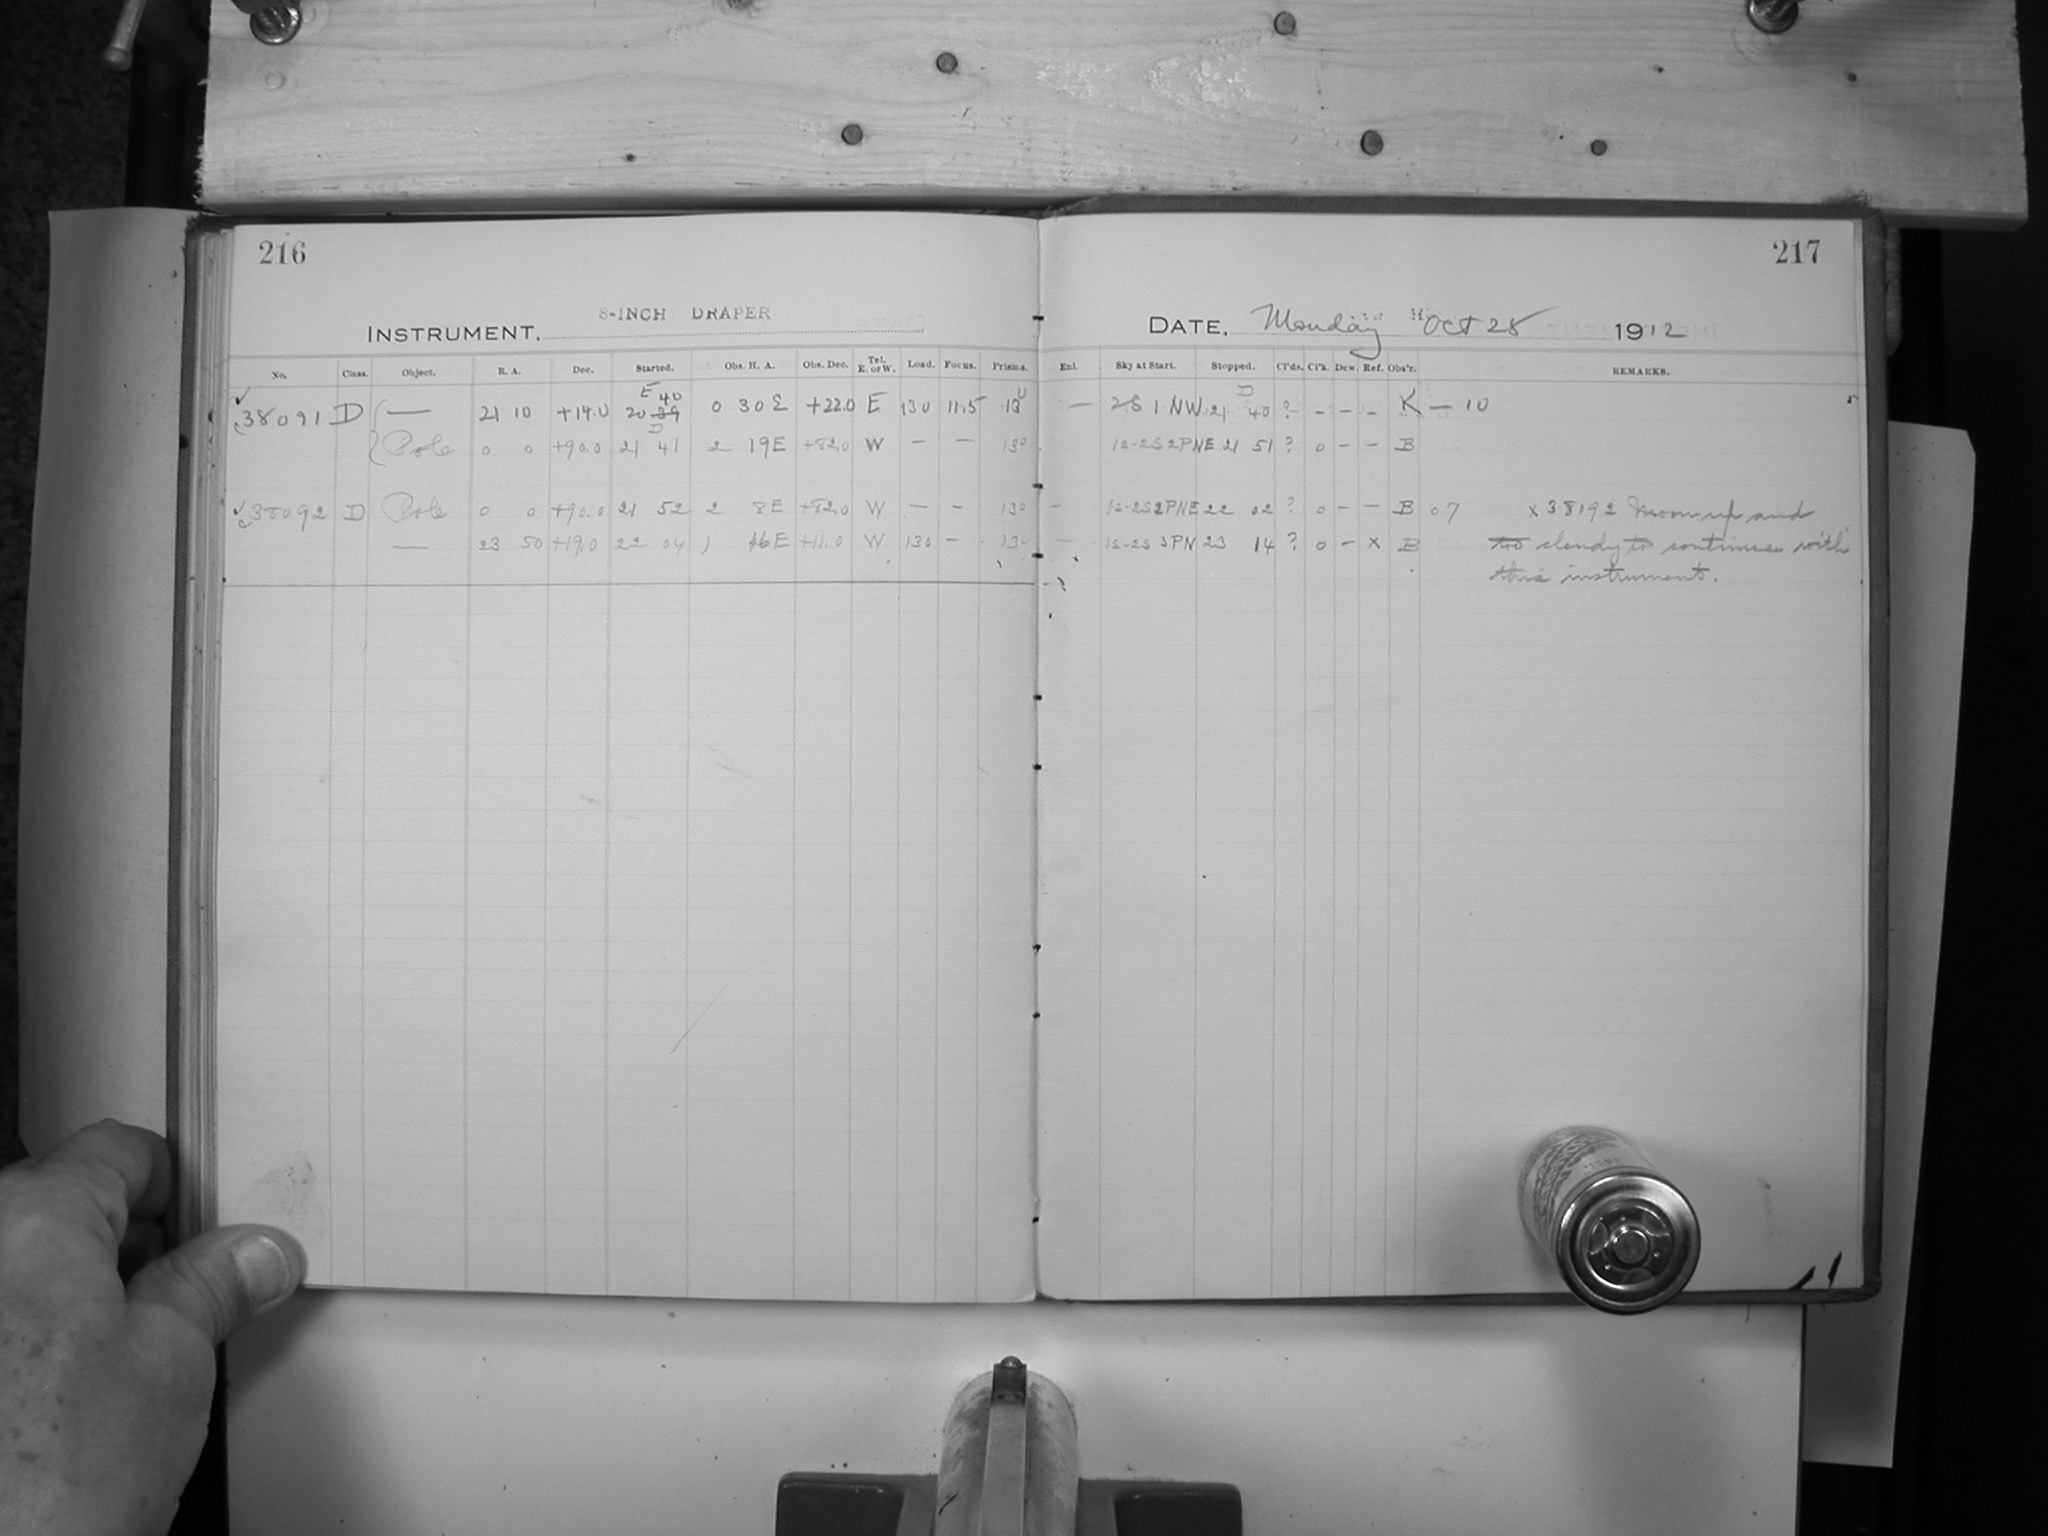 216
217
8-INCH DRAPER
INSTRUMENT,
DATE, Monday Oct 28 1912
No. Class. Object. R. A. Dec. Started. Obs. H. A. Obs. Dec. Tel. E. or W. Load. Focus. Prisms. Enl. Sky at Start. Stopped. Cl'ds. Cl'k. Dew. Ref. Obs'r. REMARKS.
E 40 D
38091 D — 21 10 +14.0 20 39 0 30 E +22.0 E 130 11.5 130 — 2S 1 NW 21 40 ? - - - K — 10
D
Pole 0 0 +90.0 21 41 2 19E +82.0 W — — 130 1s-2S 2PNE 21 51 ? 0 - - B
38092 D Pole 0 0 +90.0 21 52 2 8E +82.0 W — - 130 - 1s-2S 2PNE 22 02 ? 0 - - B 07 x 38092 Moon up and
— 23 50 +19.0 22 04 1 46E +11.0 W 130 - 130 — 1s-2S 3PN 23 14 ? 0 - x B too cloudy to continue with
this instrument.